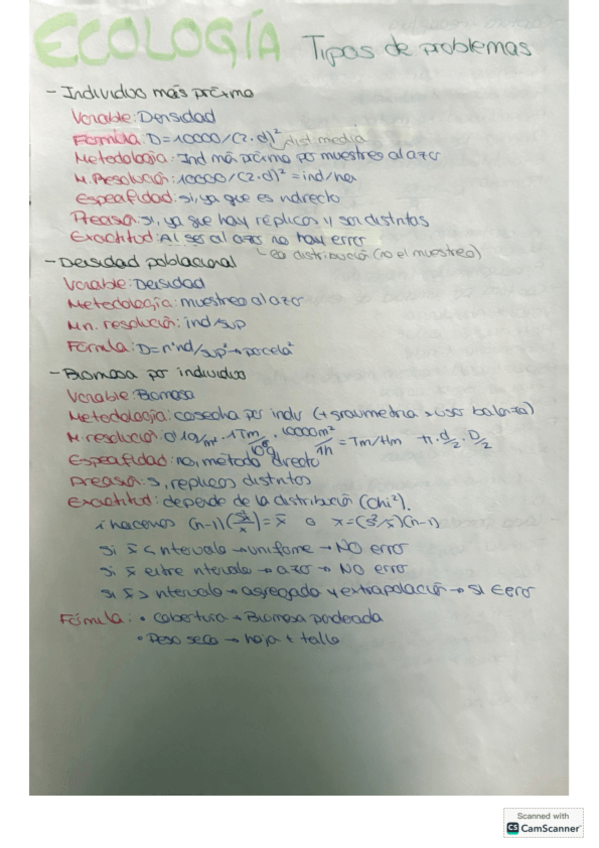 ECOLOGÍA Tipos de problemas
- Individuo más próximo
Variable: Densidad
Fórmula: D=10000/(2·d)² dist media
Metodología: Ind más próximo por muestreo al azar
M. Resolución: 10000/(2·d)² = ind/ha
Especifidad: si, ya que es indirecto
Precisión: si, ya que hay réplicas y son distintas
Exactitud: Al ser al azar no hay error
distribución (no el muestreo)
- Densidad poblacional
Variable: Densidad
Metodología: muestreo al azar
Mn. resolución: ind/sup
Fórmula: D=nºind/sup² → parcela²
- Biomasa por individuo
Variable: Biomasa
Metodología: cosecha por indiv (+ gravimetría → usar balanza)
M. resolución: 0'1g/m² · 1Tm/10⁶g · 10000m²/1h = Tm/Hm π·d/2·D/2
Especifidad: no, método directo
Precisión: si, replicas distintas
Exactitud: depende de la distribución (Chi²).
hacemos (n-1)(s²/x) = x̄ o x=(s²/x̄)(n-1)
Si x̄ < intervalo → uniforme → NO error
si x̄ entre intervalo → azar → NO error
si x̄ > intervalo → agregado y extrapolación → si error
Fórmula: • Cobertura → Biomasa ponderada
• Peso seco → hoja + tallo
Scanned with
CS CamScanner